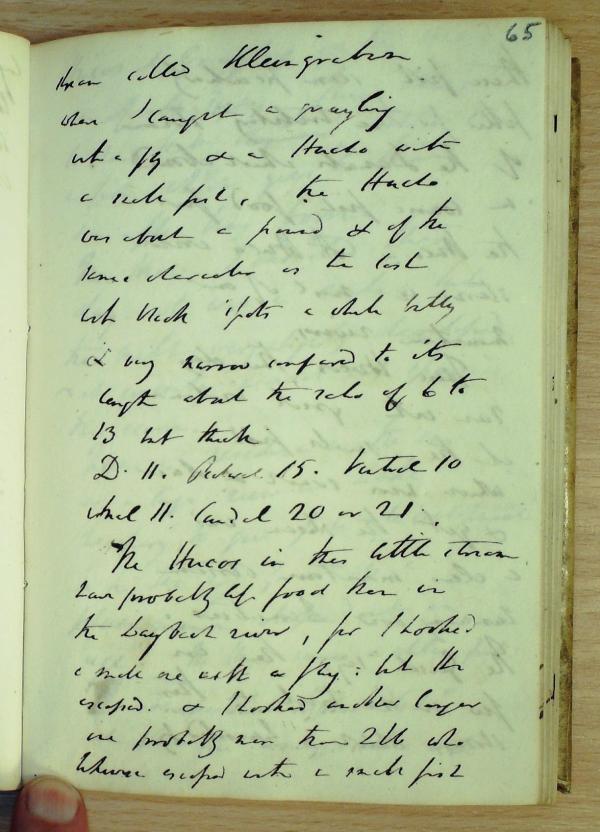 65
stream called Kleingraben
where I caught a grayling
with a fly & a Hucho with
a small fish, the Hucho
was about a pound & of the
same character as the last
with black spots a white belly
& very narrow compared to its
length about the ratio of 6 to
13 but thick
D. 11. Pectoral 15. Ventral 10
Anal 11. Caudal 20 or 21.
The Hucos in this little stream
have probably less food than in
the Laybach river, for I hooked
a small one with a fly: but this
escaped. & I hooked another larger
one probably near two 2lb who
likewise escaped with a small fish